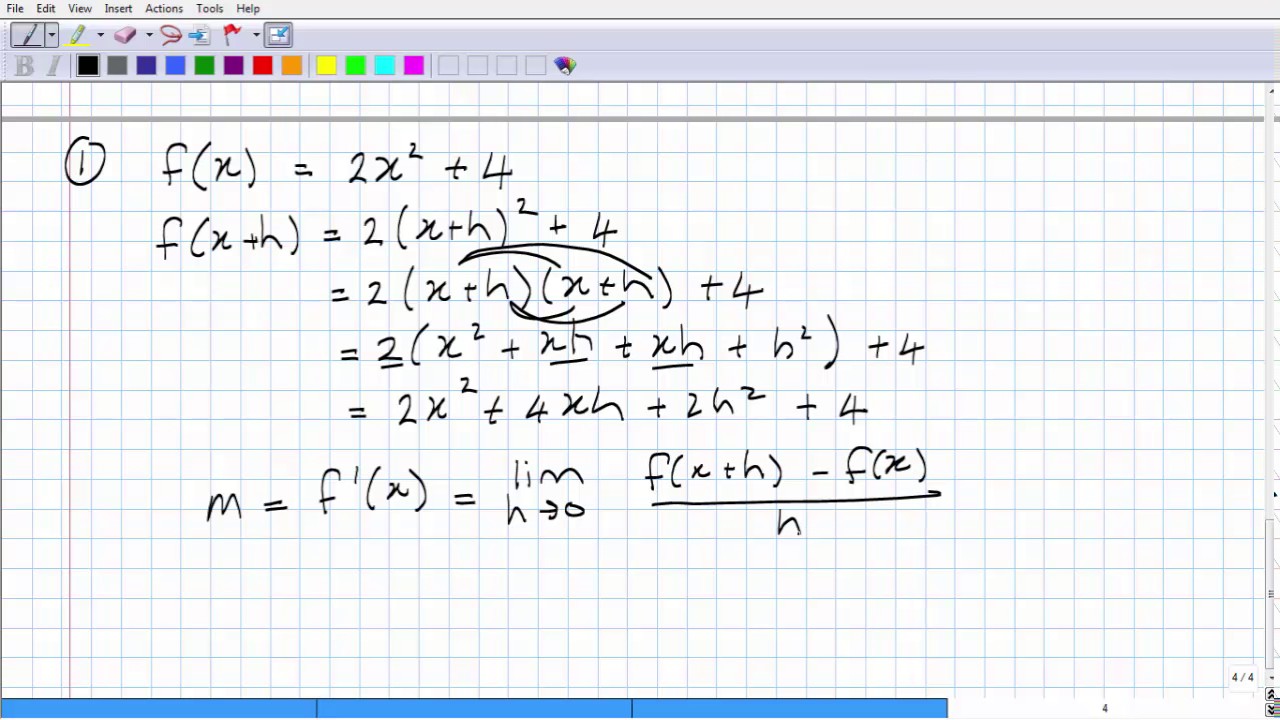 File Edit View Insert Actions Tools Help
B I
① f(x) = 2x² + 4
f(x+h) = 2(x+h)² + 4
= 2(x+h)(x+h) + 4
= 2(x² + xh + xh + h²) + 4
= 2x² + 4xh + 2h² + 4
m = f'(x) = lim h→0 f(x+h) - f(x) / h
4/4
4